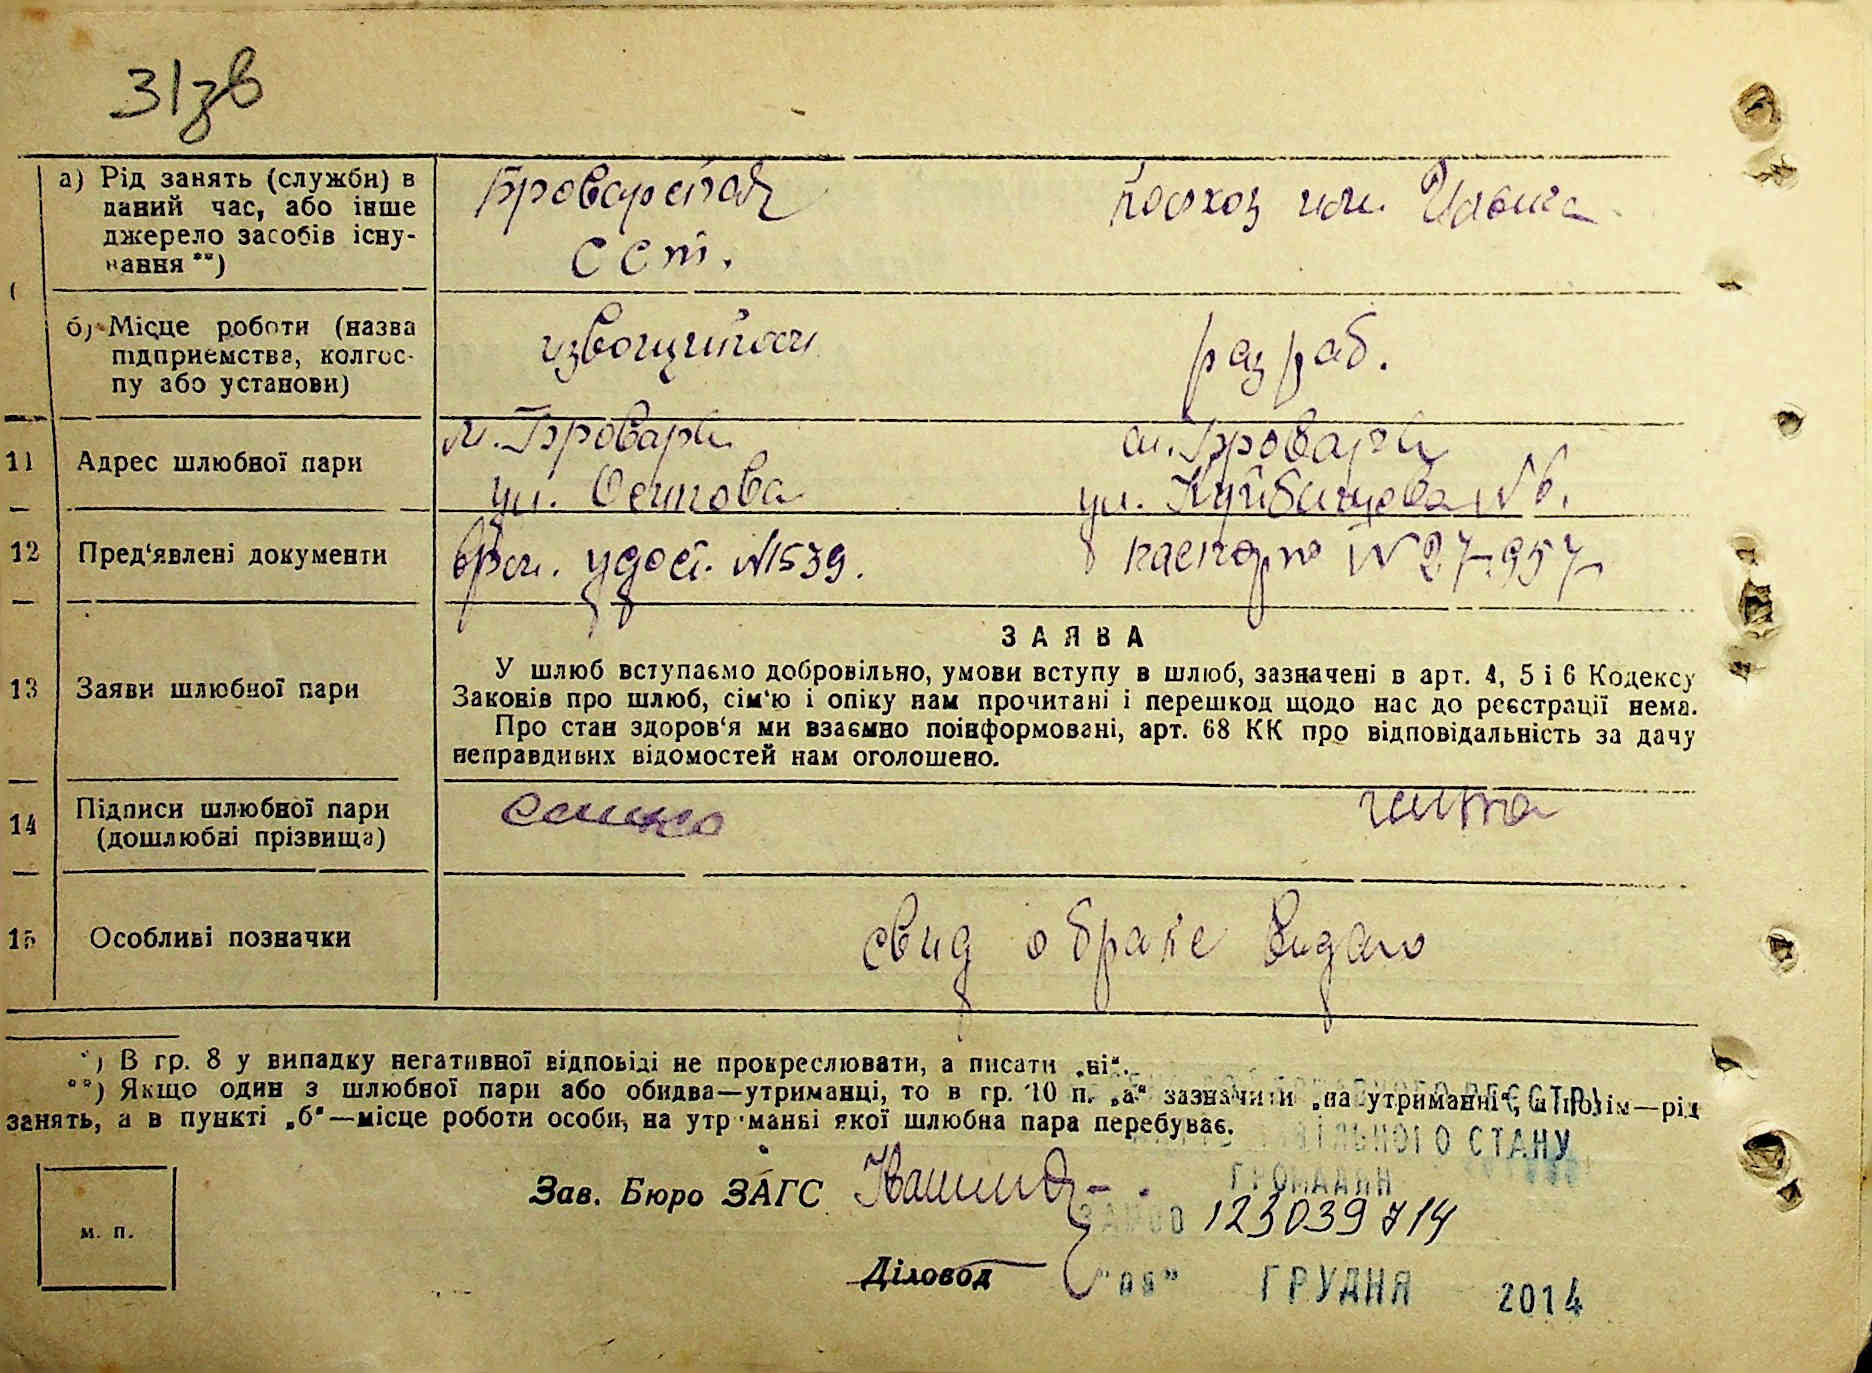 31зв
а) Рід занять (служби) в
даний час, або інше
джерело засобів існу-
вання **)
Броварской
с с т.
колхоз им.
б) Місце роботи (назва
підприємства, колгос-
пу або установи)
извощиком
раз раб.
11 Адрес шлюбної пари
м. Бровари
ул. Осипова
м. Бровари
ул. Куйбишева N 6.
12 Пред'явлені документи
врем. удост. N 1539.
паспорт N 27-957
13 Заяви шлюбної пари
ЗАЯВА
У шлюб вступаємо добровільно, умови вступу в шлюб, зазначені в арт. 4, 5 і 6 Кодексу
Законів про шлюб, сім'ю і опіку нам прочитані і перешкод щодо нас до реєстрації нема.
Про стан здоров'я ми взаємно поінформовані, арт. 68 КК про відповідальність за дачу
неправдивих відомостей нам оголошено.
14 Підписи шлюбної пари
(дошлюбні прізвища)
15 Особливі позначки
свид о браке видано
*) В гр. 8 у випадку негативної відповіді не прокреслювати, а писати „ні“.
**) Якщо один з шлюбної пари або обидва—утриманці, то в гр. 10 п. „а“ зазначити „на утриманні“, а потім—рід
занять, а в пункті „б“—місце роботи особи, на утриманні якої шлюбна пара перебуває.
СТАНУ
ГРОМАДЯН
Зав. Бюро ЗАГС
123039714
Діловод
ГРУДНЯ 2014
м. п.